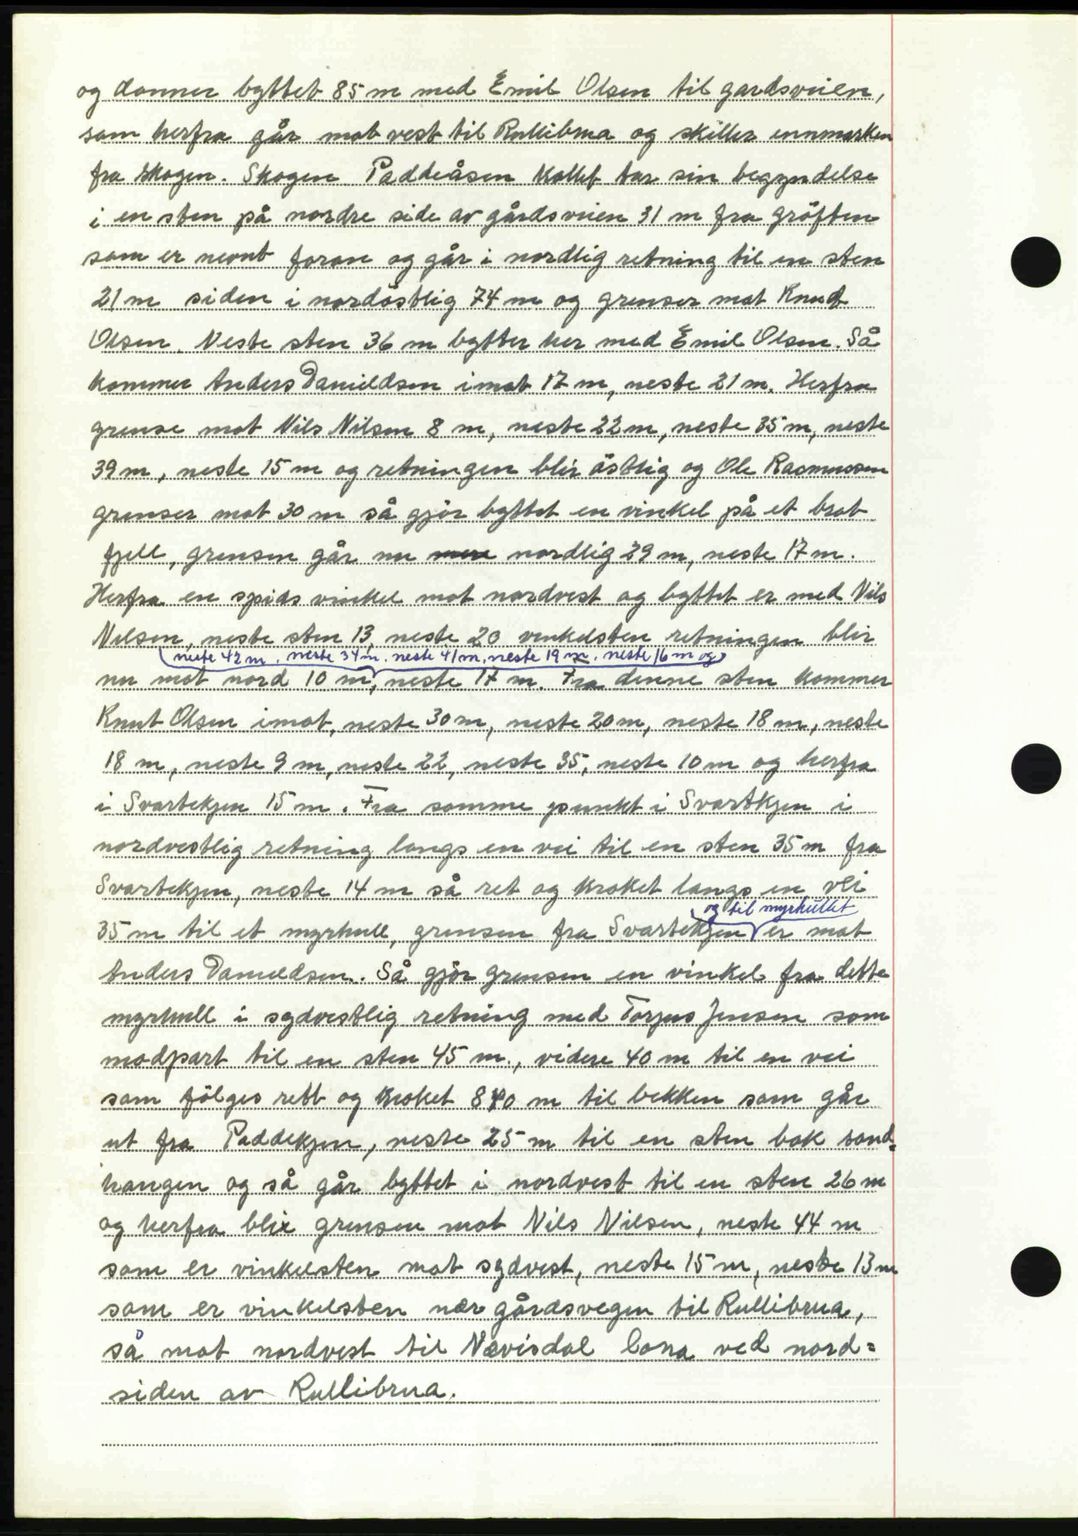 og danner byttet 85 m med Emil Olsen til gardsveien,
som herfra går mot vest til Rullibrua og skiller innmarken
fra skogen. Skogen Paddeåsen kallet tar sin begyndelse
i en sten på nordre side av gårdsveien 31 m fra gröften
som er nevnt foran og går i nordlig retning til en sten
21 m siden i nordöstlig 74 m og grenser mot Knut
Olsen. Neste sten 36 m bytter her med Emil Olsen. Så
kommer Anders Danieldsen imot 17 m, neste 21 m. Herfra
grense mot Nils Nilsen 8 m, neste 22 m, neste 35 m, neste
39 m, neste 15 m og retningen blir östlig og Ole Rasmussen
grenser mot 30 m så gjör byttet en vinkel på et brat
fjell, grensen går nu nordlig 29 m, neste 17 m.
Herfra en spids vinkel mot nordvest og byttet er med Nils
Nilsen, neste sten 13, neste 20 vinkelsten retningen blir
neste 42 m, neste 34 m, neste 41 m, neste 19 m, neste 16 m og
nu mot nord 10 m, neste 17 m. Fra denne sten kommer
Knut Olsen imot, neste 30 m, neste 20 m, neste 18 m, neste
18 m, neste 9 m, neste 22, neste 35, neste 10 m og herfra
i Svartekjen 15 m. Fra samme punkt i Svartkjen i
nordvestlig retning langs en vei til en sten 35 m fra
Svartekjen, neste 14 m så ret og kroket langs en vei
og til myrhullet
35 m til et myrhull, grensen fra Svartekjen er mot
Anders Danieldsen. Så gjör grensen en vinkel fra dette
myrhull i sydvestlig retning med Torjus Jensen som
modpart til en sten 45 m, videre 40 m til en vei
som fölges rett og kroket 840 m til bekken som går
ut fra Paddekjen, neste 25 m til en sten bak
hangen og så går byttet i nordvest til en sten 26 m
og herfra blir grensen mot Nils Nilsen, neste 44 m
som er vinkelsten mot sydvest, neste 15 m, neste 13 m
som er vinkelsten nær gårdsvegen til Rullibrua,
så mot nordvest til Nævisdal lona ved nord=
siden av Rullibrua.